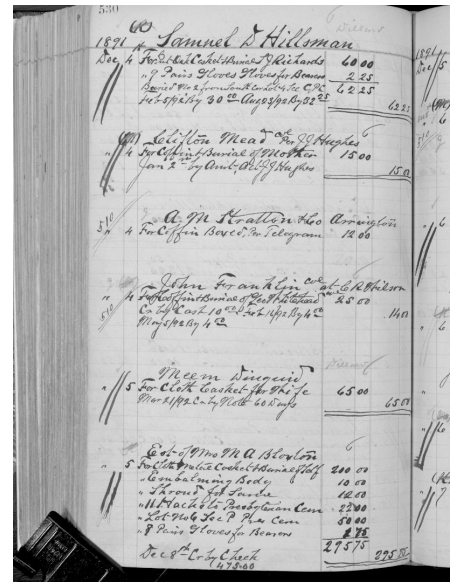 530
1891 Samuel D Hillsman
Dec 4 For Casket & Burial Richards 60 00
" 9 Pairs Gloves for Bearers 2 25
62 25
Feb 5/92 By 30 00 Aug 25/92 By 32 25
62 25
Clifton Mead Col Per J J Hughes
" 4 For Coffin & Burial of Mother 15 00
Jan 2nd by Amt J J Hughes
15 00
510
A M Stratton & Co Arrington
" 4 For Coffin Boxed Per Telegram 12 00
510
John Franklin Col at C R Wilson
" 4 For Coffin & Burial of Geo Whitehead 25 00
Cr by Cash 10 00 Feb 16/92 By 4 00
May 5/92 By 4 00
14 00
Meem Diuguid
" 5 For Cloth Casket for Wife 65 00
Mar 21/92 Cr by Note 60 Days
65 00
Est of Mrs M A Bloxton
" 5 For Cloth Casket & Burial of Self 200 00
" Embalming Body 10 00
" Shroud for Same 12 00
" 11 Hacks to Presbyterian Cem 22 00
" Lot No 6 Sec P Pres Cem 50 00
" 8 Pairs Gloves for Bearers 1 75
295 75
Dec 8th Cr by Check
295 75